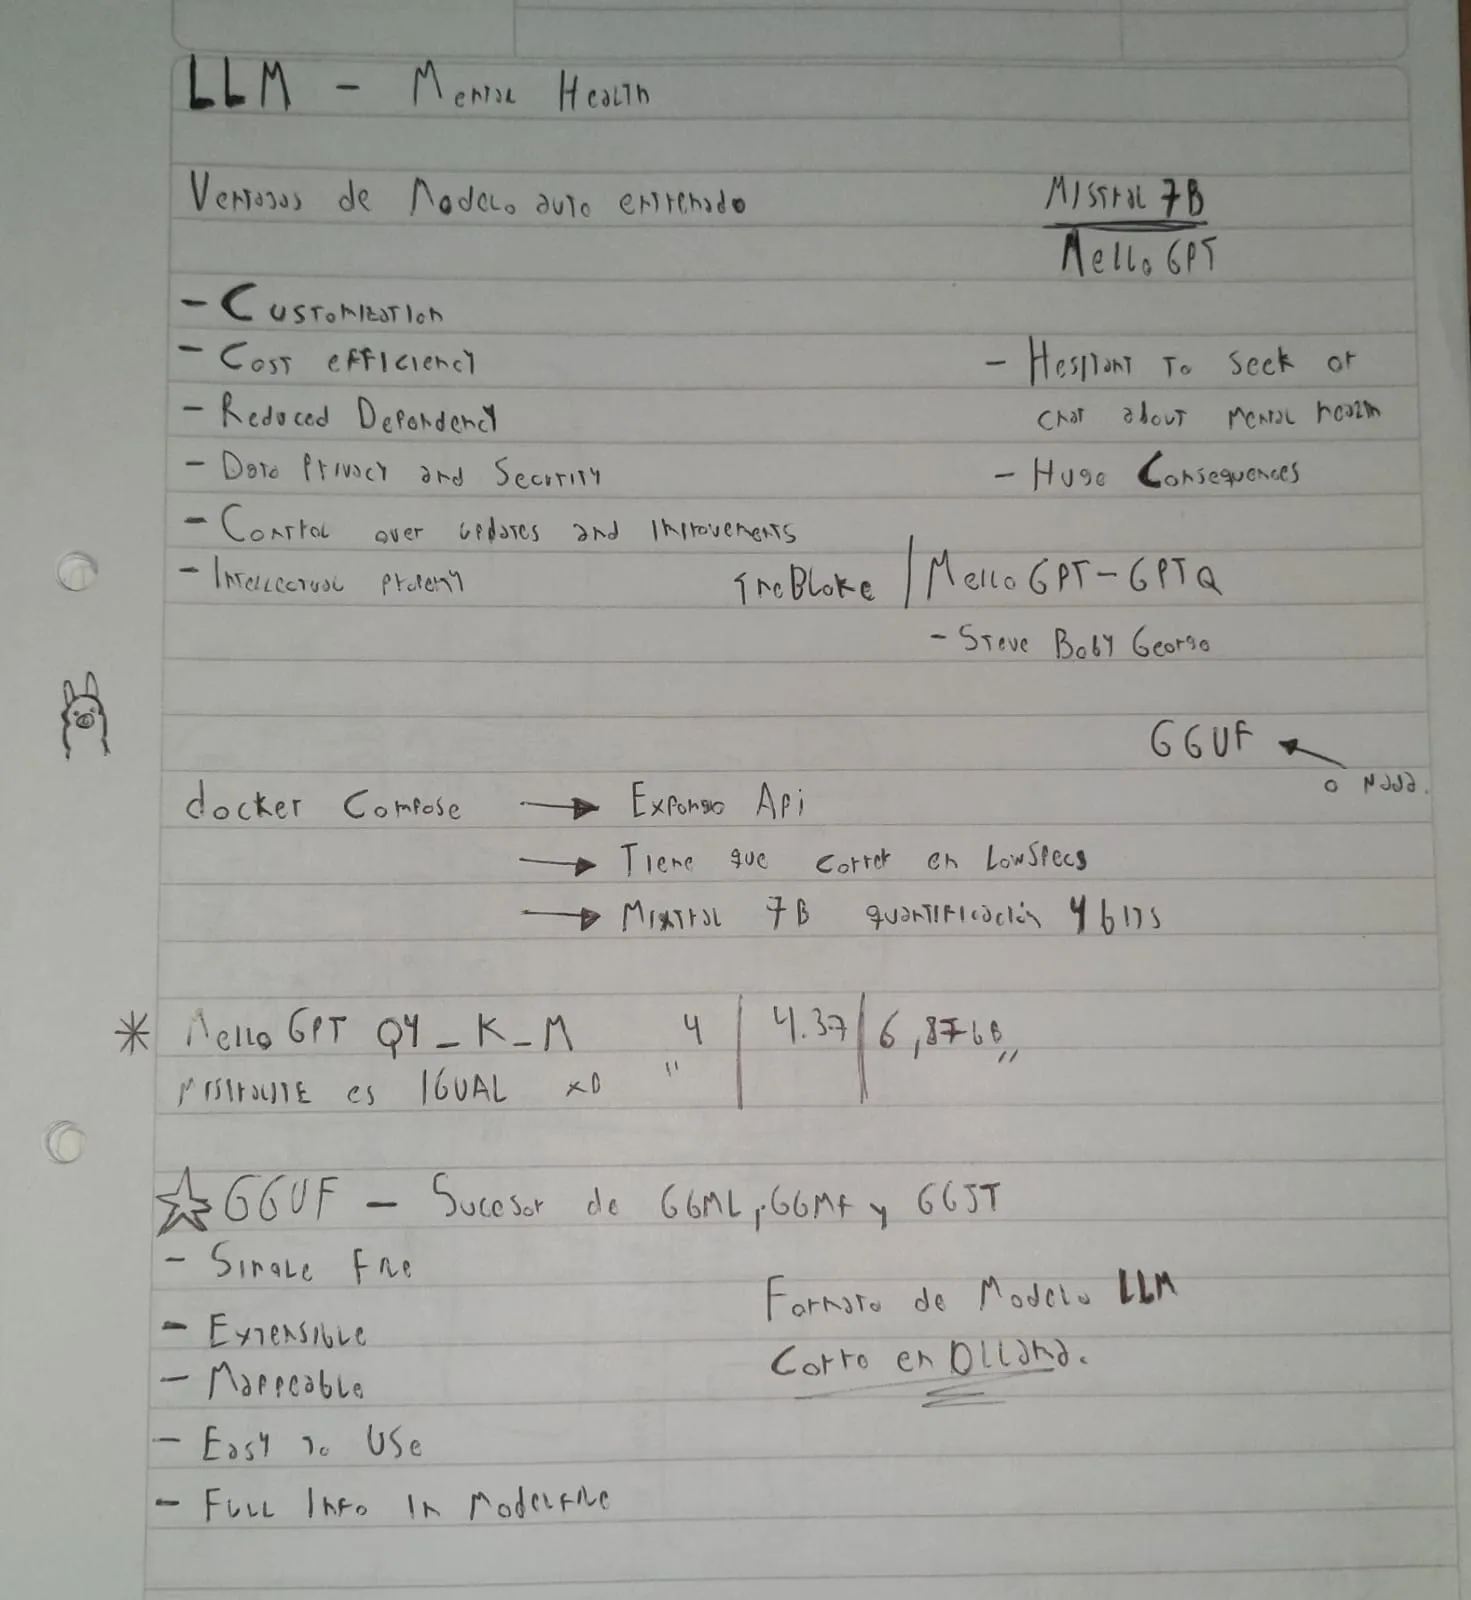 LLM - Mental Health
Ventajas de Modelo auto entrenado
Mistral 7B
Mello GPT
- Customization
- Cost efficiency
- Reduced Dependency
- Data Privacy and Security
- Control over updates and Improvements
- Intellectual property
- Hesitant To Seek or
chat about mental health
- Huge Consequences
TheBloke / Mello GPT-GPTQ
- Steve Boby George
GGUF
o Nada.
docker Compose → Expongo Api
→ Tiene que correr en LowSpecs
→ Mixtral 7B quantificación 4 bits
* Mello GPT Q4_K_M 4 | 4.37 | 6,87GB
MistraLITE es IGUAL xD " "
☆ GGUF - Sucesor de GGML, GGMF y GGJT
- Single File
- Extensible
- Mappeable
- Easy To Use
- Full Info In Modelfile
Formato de Modelo LLM
Corro en Ollama.